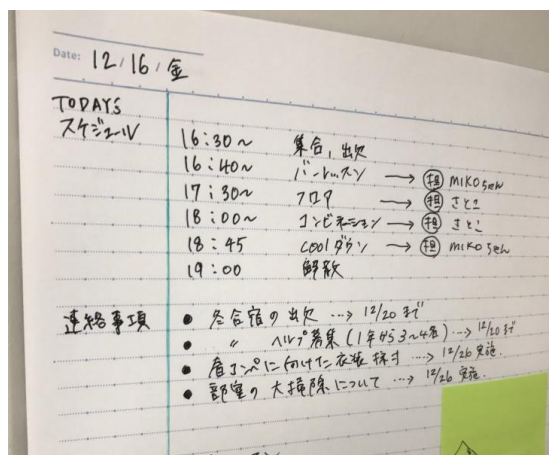 Date: 12/16/金
TODAYS
スケジュール
16:30~ 集合,出欠
16:40~ バーレッスン → 担 MIKOせん
17:30~ フロア → 担 さとこ
18:00~ コンビネーション → 担 さとこ
18:45 COOLダウン → 担 MIKOせん
19:00 解散
連絡事項
● 冬合宿の出欠 …→ 12/20まで
● 〃 ヘルプ募集(1年から3~4名) …→ 12/20まで
● 春コンペに向けた衣装採寸 …→ 12/26実施.
● 部室の大掃除について …→ 12/26実施.